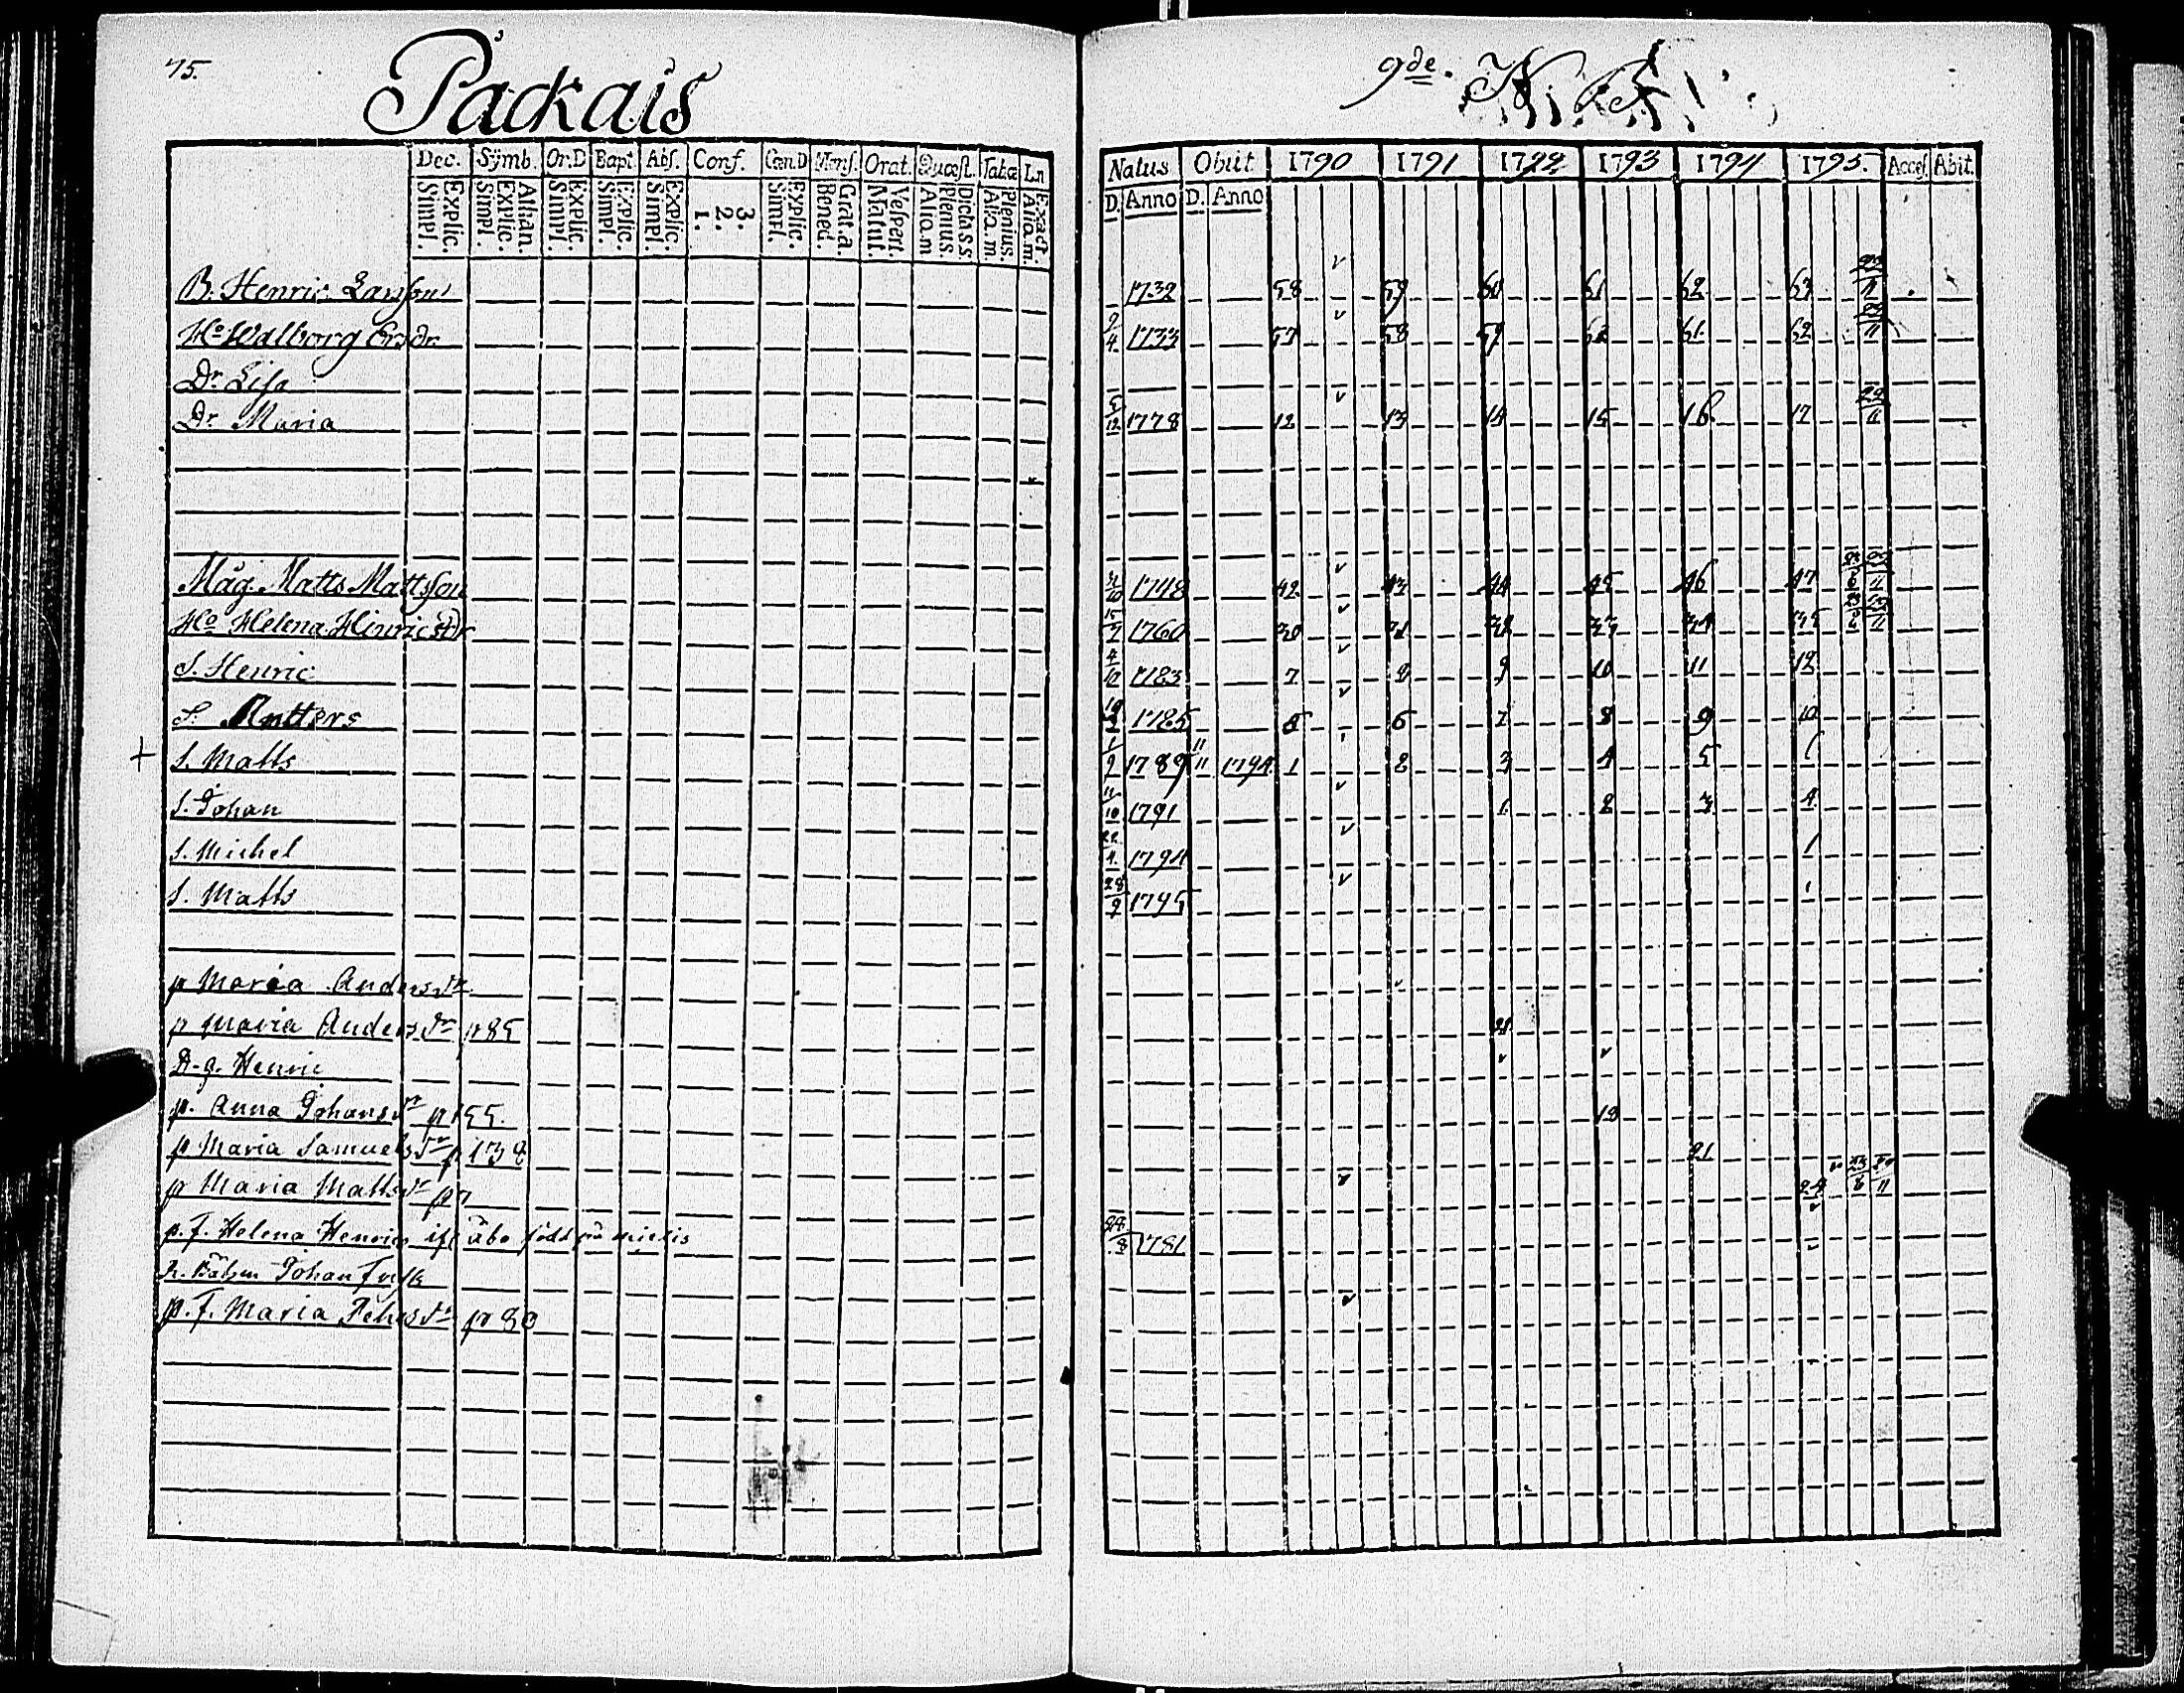 75.
Påckais
Dec. Sÿmb. Or.D Bapt. Abs. Conf. Cœn.D Mens. Orat. Quæst. Tabœ L.n
Explic. Simpl. Athan. Explic. Simpl. Explic. Simpl. Explic. Simpl. Explic. Simpl. 3. 2. 1. Explic. Simpl. Grat.a. Bened. Vespert. Matut. Dicta S S. Plenius. Aliq.m Plenius. Aliq.m. Exact. Aliq.m.
B. Henric Larsson
Ho Walborg Ersdr
Dr. Lisa
Dr. Maria
Måg. Matts Mattsson
Ho Helena Hinricsdr
S. Henric
S. Antters
+ S. Matts
S. Johan
S. Michel
S. Matts
p Maria Andersdr
p Maria Andersdr p 85
D.g. Henric
p. Anna Johansdr p 155.
p Maria Samuelsdr p. 138
p Maria Mattsdr p 7
p. f. Helena Henrics åbo född på
Johan
p. f. Maria p 80
9de.
Natus Obiit 1790 1791 1792 1793 1794 1795. Access. Abit.
D. Anno D. Anno
1732 58 59 60 61 62 63
9/4 1733 57 58 59 60 61 62 11
5/12 1778 12 13 14 15 16 17 11
1748 42 43 44 45 46 47
15/7 1760 30 31 32 33 34 35
4/12 1783 7 8 9 10 11 12
1785 5 6 7 8 9 10
1789 11/11 1794 1 2 3 4 5
11/10 1791 1 2 3 4
22/4 1794 1
28/9 1795
18
21
24
1781